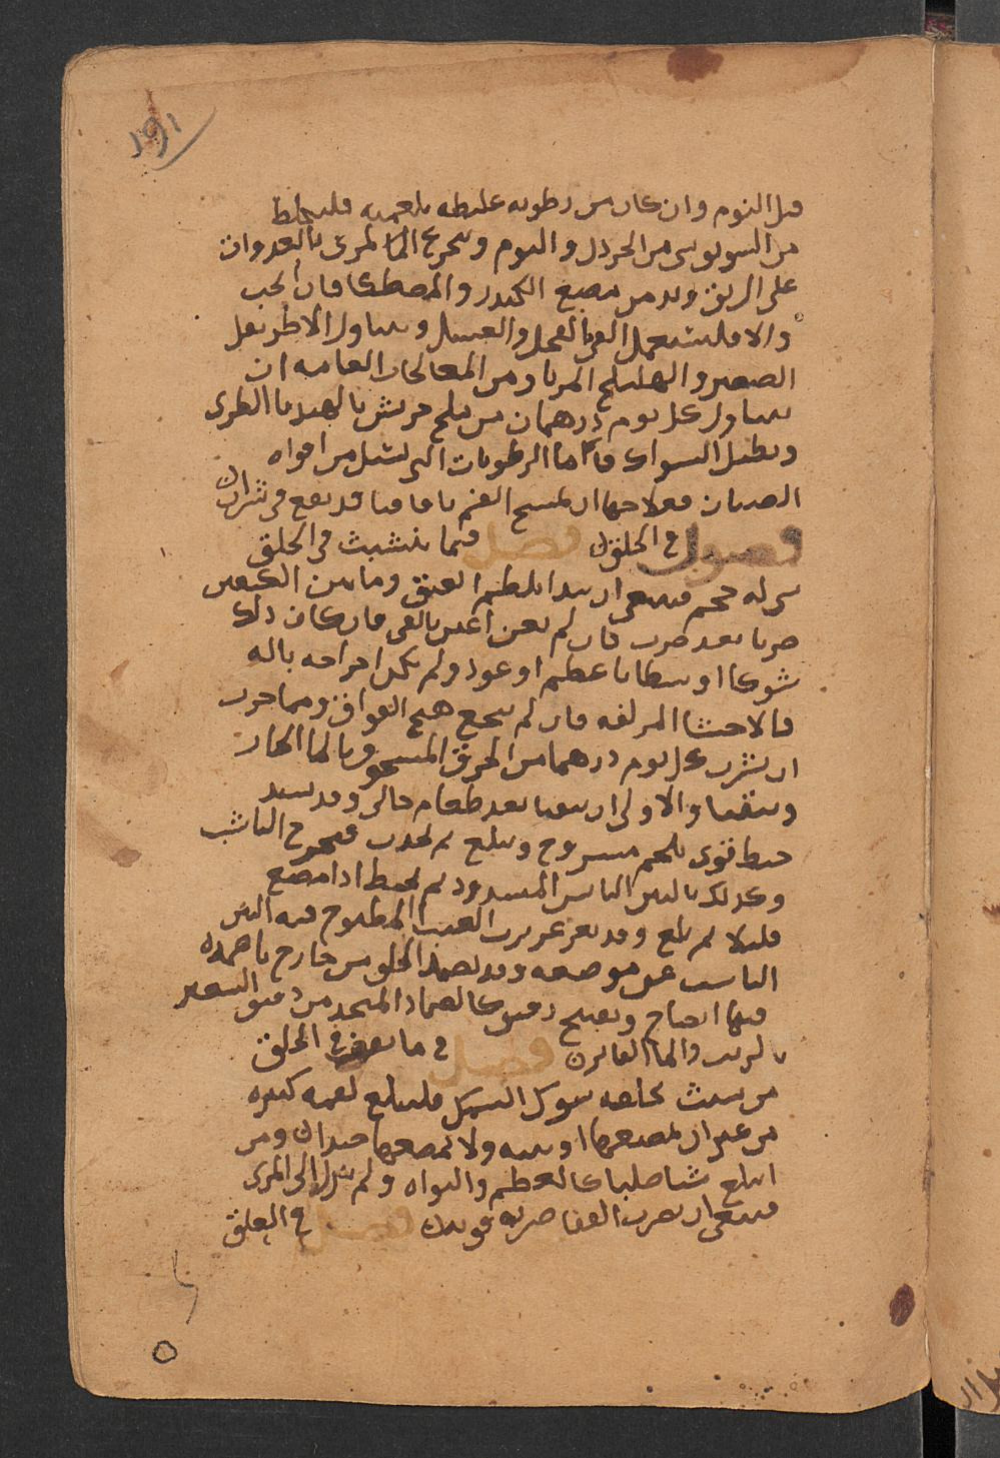 ١٩١
قبل النوم وان كان من رطوبه غليظه بلغميه فليخلط
من الخردل والثوم وتجرع الما المرى بالغدوات
على الريق ويدمن مضغ الكندر والمصطكا فان انجب
والا فليستعمل القى بالفجل والعسل ويتناول الاطريفل
الصغير والهليلج المربا ومن المعالجات العاميه ان
يتناول كل يوم درهمان من ملح جريش بالهندبا الطرى
ويطيل السواك فاما الرطوبات التى تسيل من افواه
الصبيان فعلاجها ان يمسح الفم باقاقيا قد نقع فى شراب
فصول فى الحلق فصل فيما ينشبث فى الحلق
ان يبدا بلطم العنق وما بين الكتفين
ضربا بعد ضرب فان لم يغن اعين بالقى فان كان ذلك
شوكا او عظم او عود ولم يكن احراجه باله
فالاحشا المزلقه فان لم ينجع هيج الفواق ومما جرب
ان يشرب كل يوم درهما من الحرف المسحوق بالما الحار
ويتقيا والاولى ان يتقيا بعد طعام مالى وقد يشد
خيط قوى بلحم مشروح ويبلع ثم يجذب فيخرج الناشب
وكذلك بالتين اليابس المشدود بخيط اذا مضغ
قليلا ثم بلع وقد يغرغر برب العنب المطبوخ فيه التين
الناشب عن موضعه وقد يضمد الحلق من خارج باضمده
فيها انضاج وتفتيح رفيق كالضماد المتخذ من دقيق الشعير
بالزيت والما الفاتر فصل فى ما يعرض فى الحلق
من نشب بحلقه شوك السمك فليبلع لقمه كبيره
من غير ان يمضغها او تينه ولا يمضغها جيدا ومن
ابتلع شيا صلبا كالعظم والنواه ولم ينزل الى المرى
فينبغى ان يضرب القفا ضربه قويه فصل فى العلق